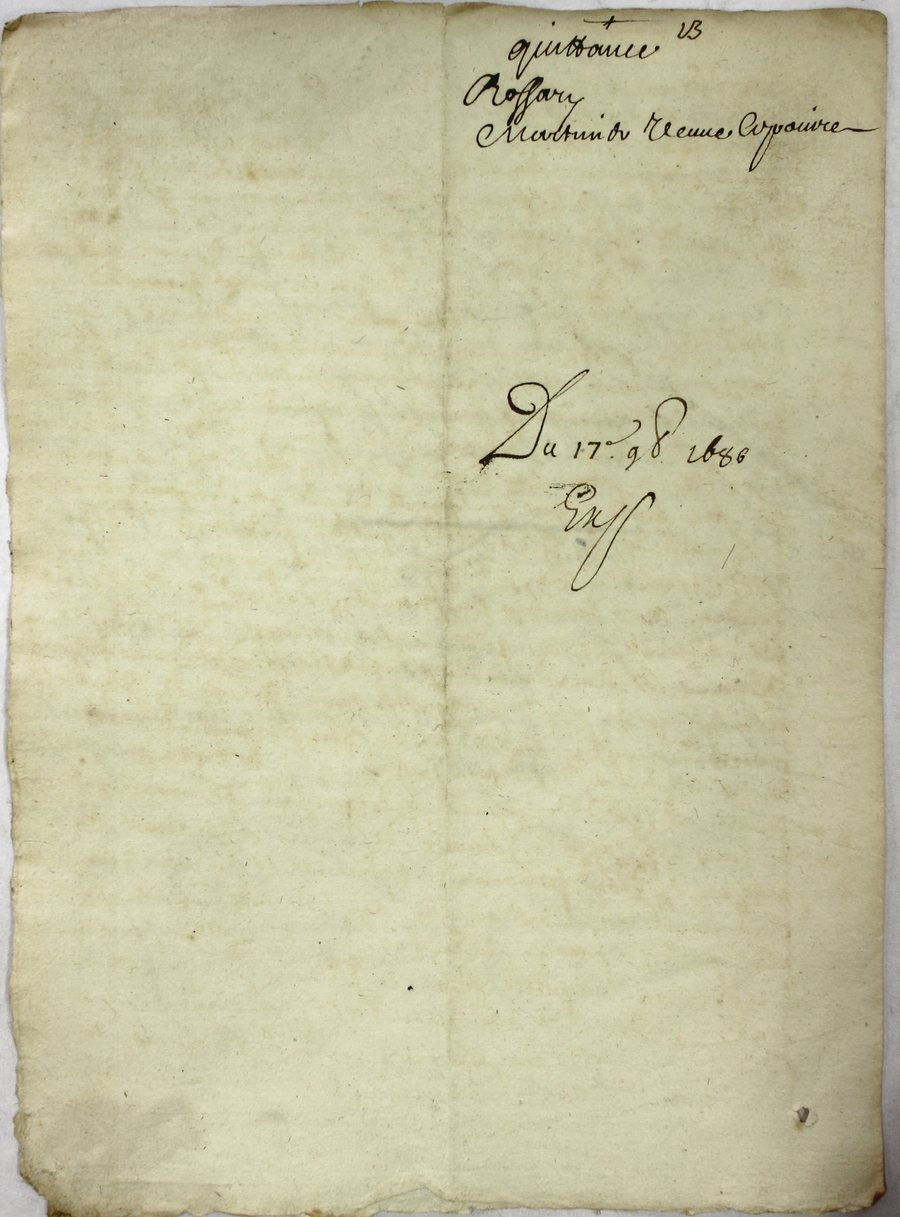 quittance 23
Rossary
Martin du Veuue Lepouire
Du 17e. 9b. 1686